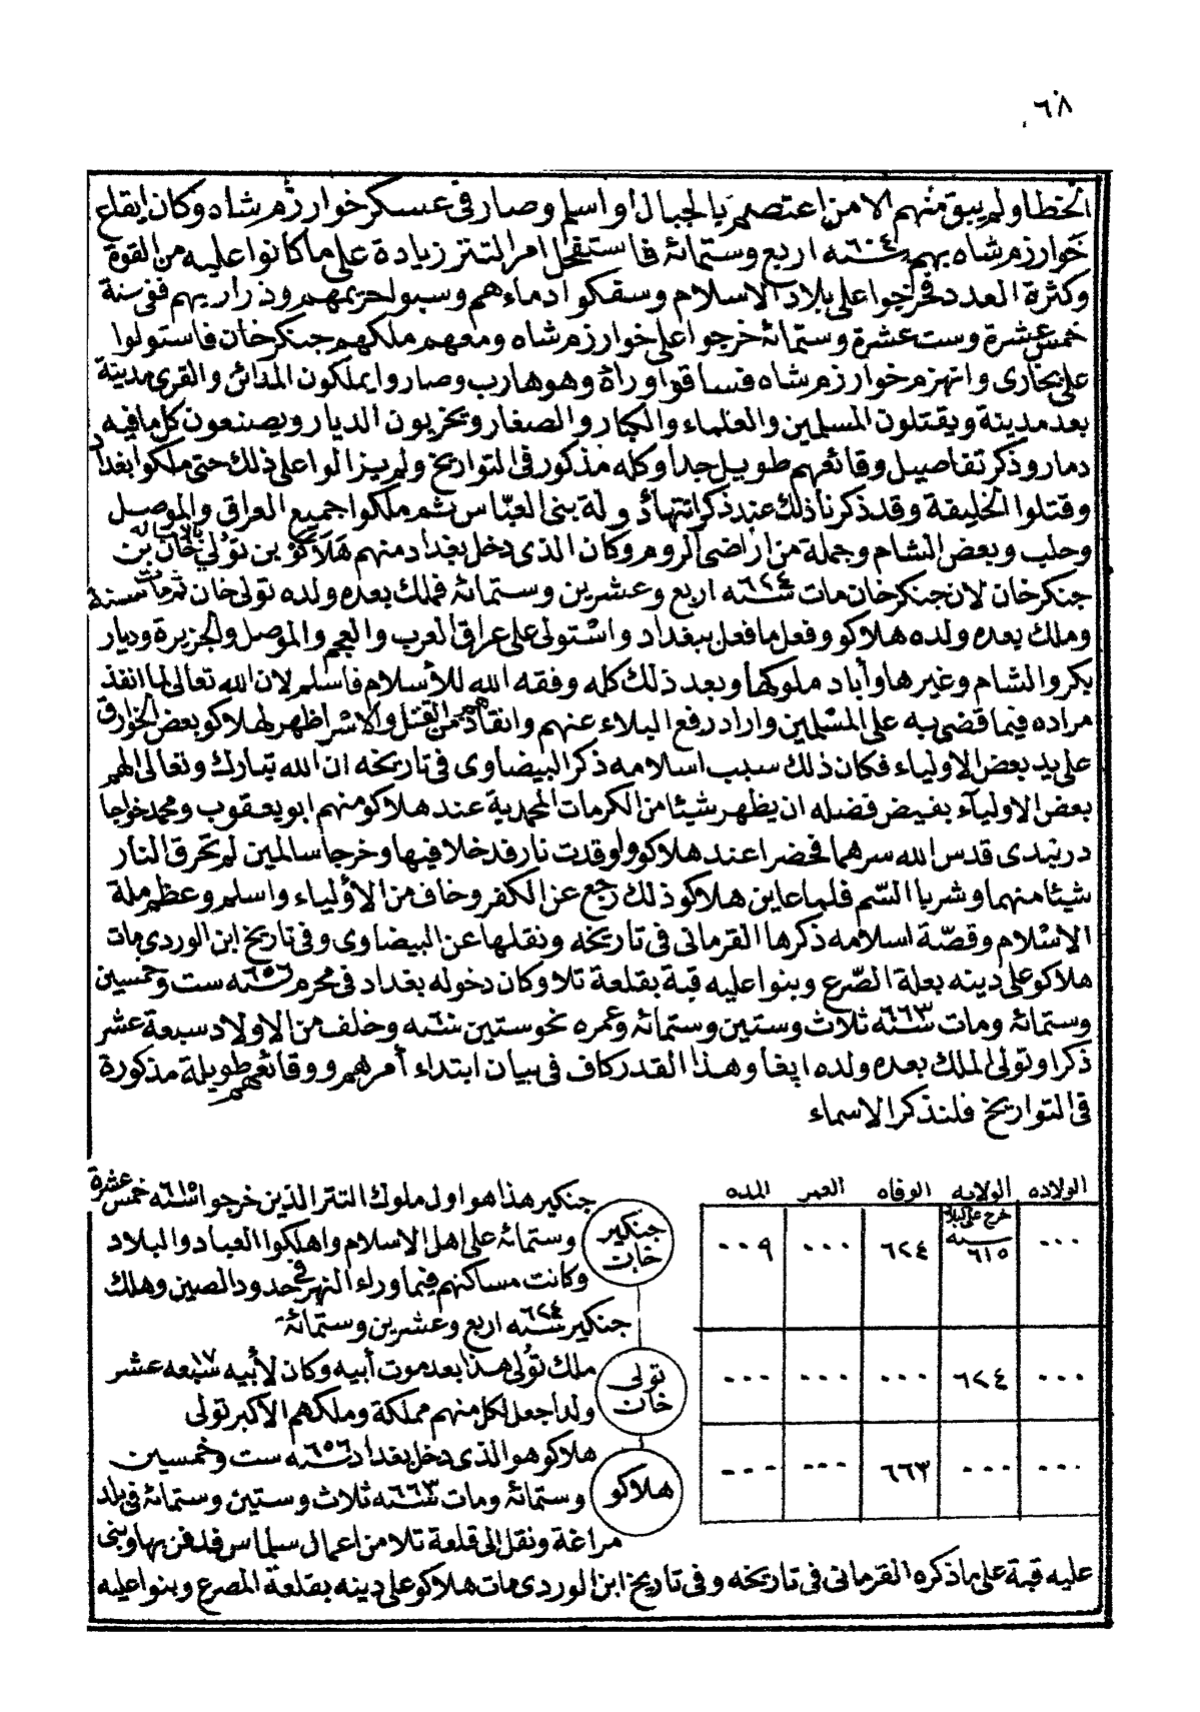 ٦٨
الخطا ولم يبق منهم الا من اعتصم بالجبال او اسلم وصار فى عسكر خوارزم شاه وكان ايقاع
خوارزم شاه بهم سنه ٦٠٤ اربع وستمائة فاستفحل امر التتر زيادة على ما كانوا عليه من القوة
وكثرة العدد فخرجوا على بلاد الاسلام وسفكوا دماءهم وسبو لحريمهم وذراريهم ففى سنة
خمس عشرة وست عشرة وستمائة خرجوا على خوارزم شاه ومعهم ملكهم جنكرخان فاستولوا
على بخارى وانهزم خوارزم شاه فساقوا وراة وهو هارب وصاروا يملكون المدائن والقرى مدينة
بعد مدينة ويقتلون المسلمين والعلماء والكبار والصغار ويخربون الديار ويصنعون كل ما فيه
دمار وذكر تفاصيل وقائعهم طويل جدا وكله مذكور فى التواريخ ولم يزالوا على ذلك حتى ملكوا بغداد
وقتلوا الخليفة وقد ذكرنا ذلك عند ذكر انتهاء دولة بنى العباس ثم ملكوا جميع العراق والموصل
وحلب وبعض الشام وجملة من اراضى الروم وكان الذى دخل بغداد منهم هلاكو بن تولي خان بن
جنكرخان لان جنكرخان مات سنه ٦٢٤ اربع وعشرين وستمائة فملك بعده ولده تولى خان ثم مات سنة
وملك بعده ولده هلاكو وفعل ما فعل ببغداد واستولى على عراق العرب والعجم والموصل والجزيرة وديار
بكر والشام وغيرها وأباد ملوكها وبعد ذلك كله وفقه الله للأسلام فاسلم لان الله تعالى لما انفذ
مراده فيما قضى به على المسلمين واراد رفع البلاء عنهم وانقاذهم من القتل والاسر اظهر لهلاكو بعض الخوارق
على يد بعض الاولياء فكان ذلك سبب اسلامه ذكر البيضاوى فى تاريخه ان الله تبارك وتعالى الهم
بعض الاولياء بفيض فضله ان يظهر شيئا من الكرمات المحمدية عند هلاكو منهم ابو يعقوب ومحمد خواجا
دربندى قدس الله سرهما فحضرا عند هلاكو واوقدت نار فدخلا فيها وخرجا سالمين لم تحرق النار
شيئا منهما وشربا السّم فلما عاين هلاكو ذلك رجع عن الكفر وخاف من الأولياء واسلم وعظم ملة
الاسلام وقصّة اسلامه ذكرها القرمانى فى تاريخه ونقلها عن البيضاوى وفى تاريخ ابن الوردى مات
هلاكو على دينه بعلة الصّرع وبنوا عليه قبة بقلعة تلا وكان دخوله بغداد فى محرم سنه ٦٥٦ ست وخمسين
وستمائة ومات سنه ٦٦٣ ثلاث وستين وستمائة وعمره نحو ستين سنه وخلف من الاولاد سبعة عشر
ذكرا وتولى الملك بعده ولده ابغا وهذا القدر كاف فى بيان ابتداء أمرهم ووقائعهم طويلة مذكورة
فى التواريخ فلنذكر الاسماء
الولاده الولايه الوفاه العمر المده
٠٠٠ خرج على البلاد سنه ٦١٥ ٦٢٤ ٠٠٠ ٠٠٩
٠٠٠ ٦٢٤ ٠٠٠ ٠٠٠ ٠٠٠
٠٠٠ ٠٠٠ ٦٦٣ ٠٠٠ ٠٠٠
جنكير خان
جنكير هذا هو اول ملوك التتر الذين خرجوا سنه ٦١٥ خمس عشرة
وستمائة على اهل الاسلام واهلكوا العباد والبلاد
وكانت مساكنهم فيما وراء النهر فى حدود الصين وهلك
جنكير سنه ٦٢٤ اربع وعشرين وستمائة
تولى خان
ملك تولى هذا بعد موت أبيه وكان لأبيه ١٧ سبعه عشر
ولدا جعل لكل منهم مملكة وملكهم الأكبر تولى
هلاكو
هلاكو هو الذى دخل بغداد سنه ٦٥٦ ست وخمسين
وستمائة ومات سنه ٦٦٣ ثلاث وستين وستمائة فى بلد
مراغة ونقل الى قلعة تلا من اعمال سلماس فدفن بها وبنى
عليه قبة على ما ذكره القرمانى فى تاريخه وفى تاريخ ابن الوردى مات هلاكو على دينه بقلعة المصرع وبنوا عليه